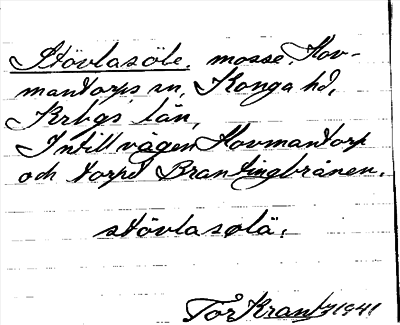 Stövlasöle, mosse, Hov-
mantorps sn, Konga hd,
Krbgs län,
Intill vägen Hovmantorp
och torpet Brantingbrånen.
stövlasølä.
Tor Krantz 1941